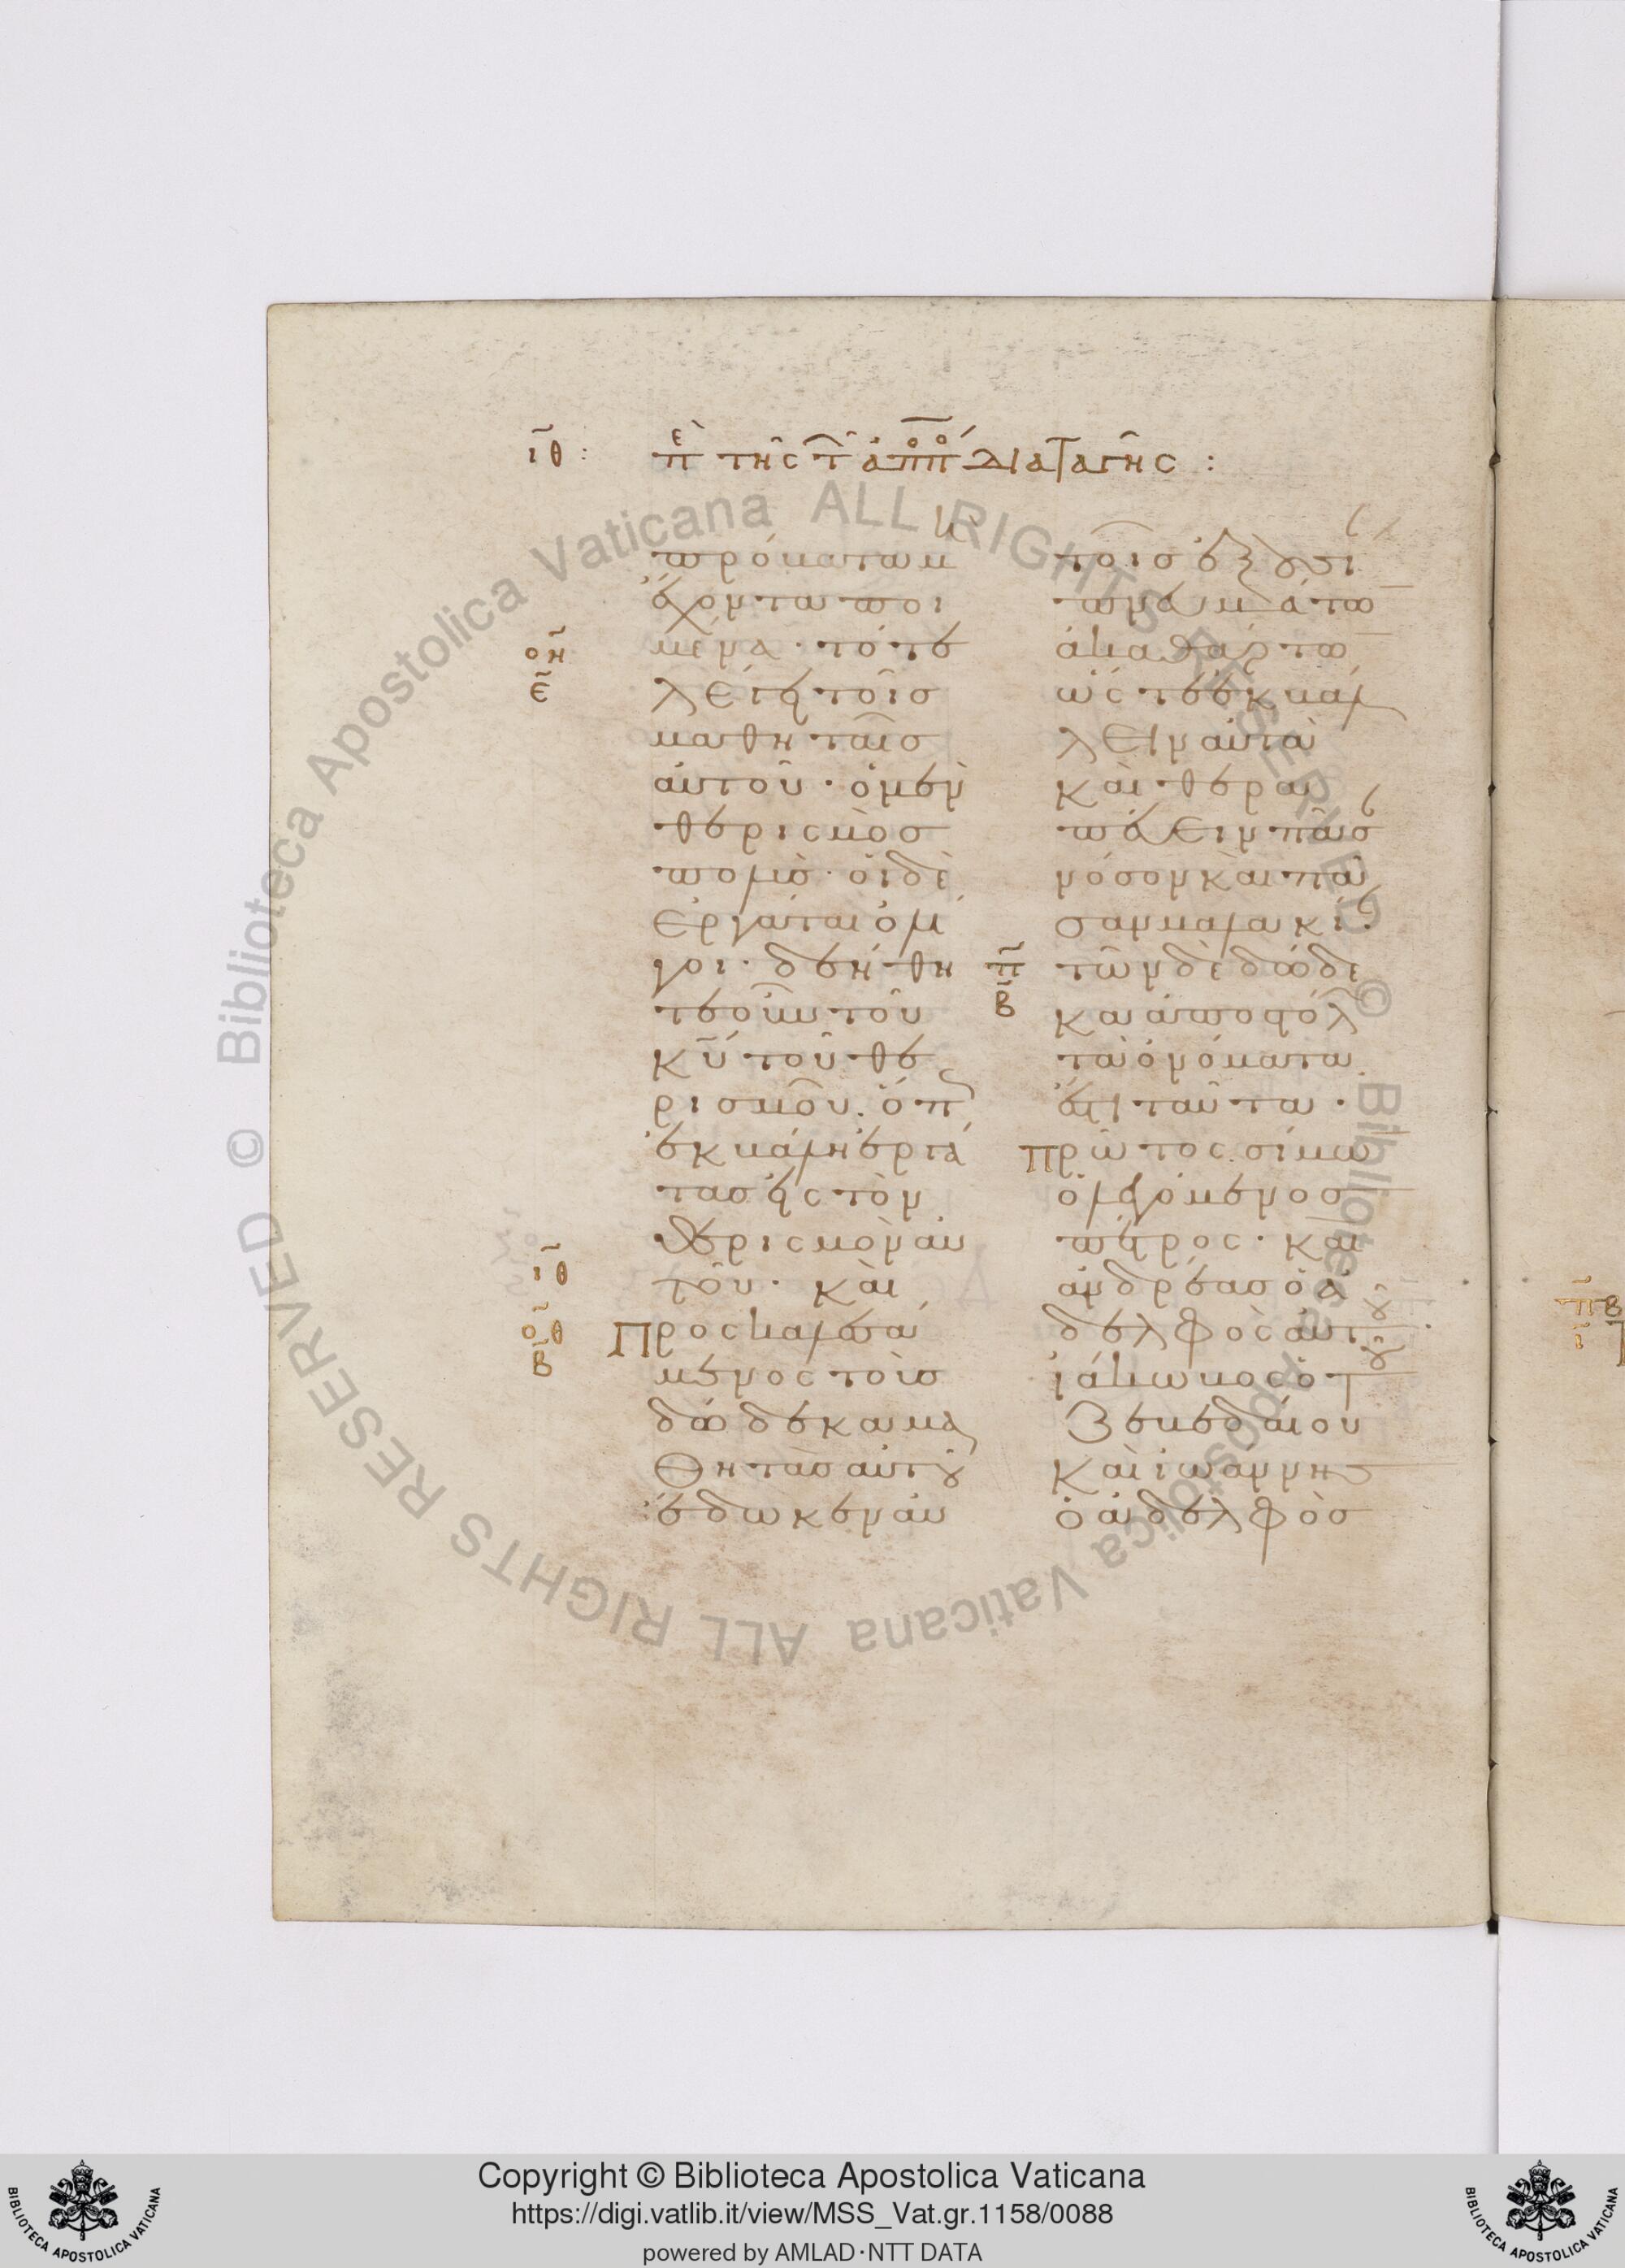 ιθ: πε τῆς τ̑ ἀποπο διαταγῆς:
πρόβατα μὴ
ἔχοντα ποι
μένα· τότε
οη
ε
λέγει τοῖσ
μαθηταῖσ
αὐτοῦ· ὁ μὲν
θερισμὸσ
πολὺσ· οἱ δὲ
ἐργάται ὀλί
γοι· δεήθη
τε οὖν τοῦ
κῡ τοῦ θε
ρισμοῦ. ὅπ
ἐκβάλη ἐργά
τασ εἰς τὸν
θερισμὸν αὐ
ιθ
τοῦ· καὶ
οθ
β
Προσκαλεσά
μενος τοὺσ
δώδεκα μα
θητὰσ αὐτοῦ
ἔδωκεν αὐ
τοῖσ ἐξουσί
πνάτω
ἀκαθάρτω
ὥστε ἐκβάλ
λειν αὐτὰ
καὶ θερα
πεύειν πᾶσ
νόσον καὶ πᾶ
σαν μαλακί
π
β
τῶν δὲ δώδε
κα ἀποστόλ
τὰ ὀνόματα
εἰσι ταῦτα·
Πρῶτος σίμω
ὁ λεγόμενοσ
πέτρος· καὶ
ἀνδρέασ ὁ ἀ
δελφὸς αὐτοῦ
ἰάκωβος ὁ τ
Ζεβεδαίου
καὶ ἰωάννησ
ὁ ἀδελφὸσ
πβ
ι
Copyright © Biblioteca Apostolica Vaticana
https://digi.vatlib.it/view/MSS_Vat.gr.1158/0088
powered by AMLAD·NTT DATA
BIBLIOTECA APOSTOLICA VATICANA
BIBLIOTECA APOSTOLICA VATICANA
© Biblioteca Apostolica Vaticana ALL RIGHTS RESERVED © Biblioteca Apostolica Vaticana ALL RIGHTS RESERVED